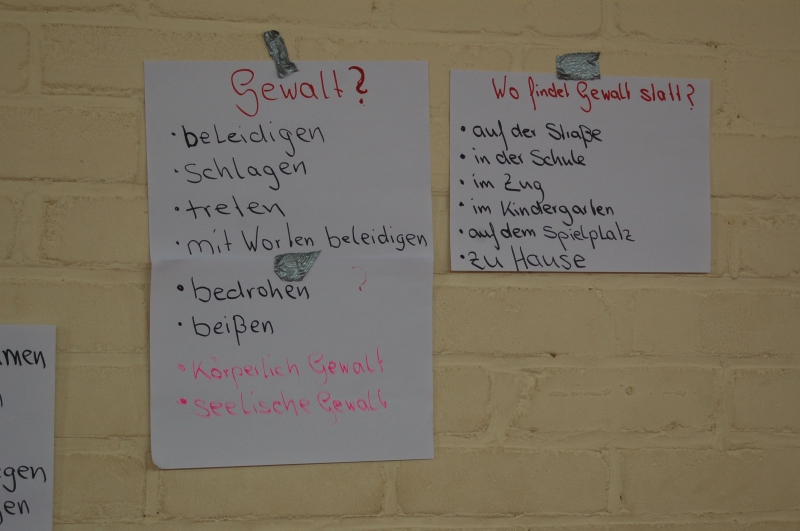 Gewalt?
• beleidigen
• schlagen
• treten
• mit Worten beleidigen
• bedrohen ?
• beißen
• Körperlich Gewalt
• seelische Gewalt
Wo findet Gewalt statt?
• auf der Straße
• in der Schule
• im Zug
• im Kindergarten
• auf dem Spielplatz
• zu Hause
men
gen
en